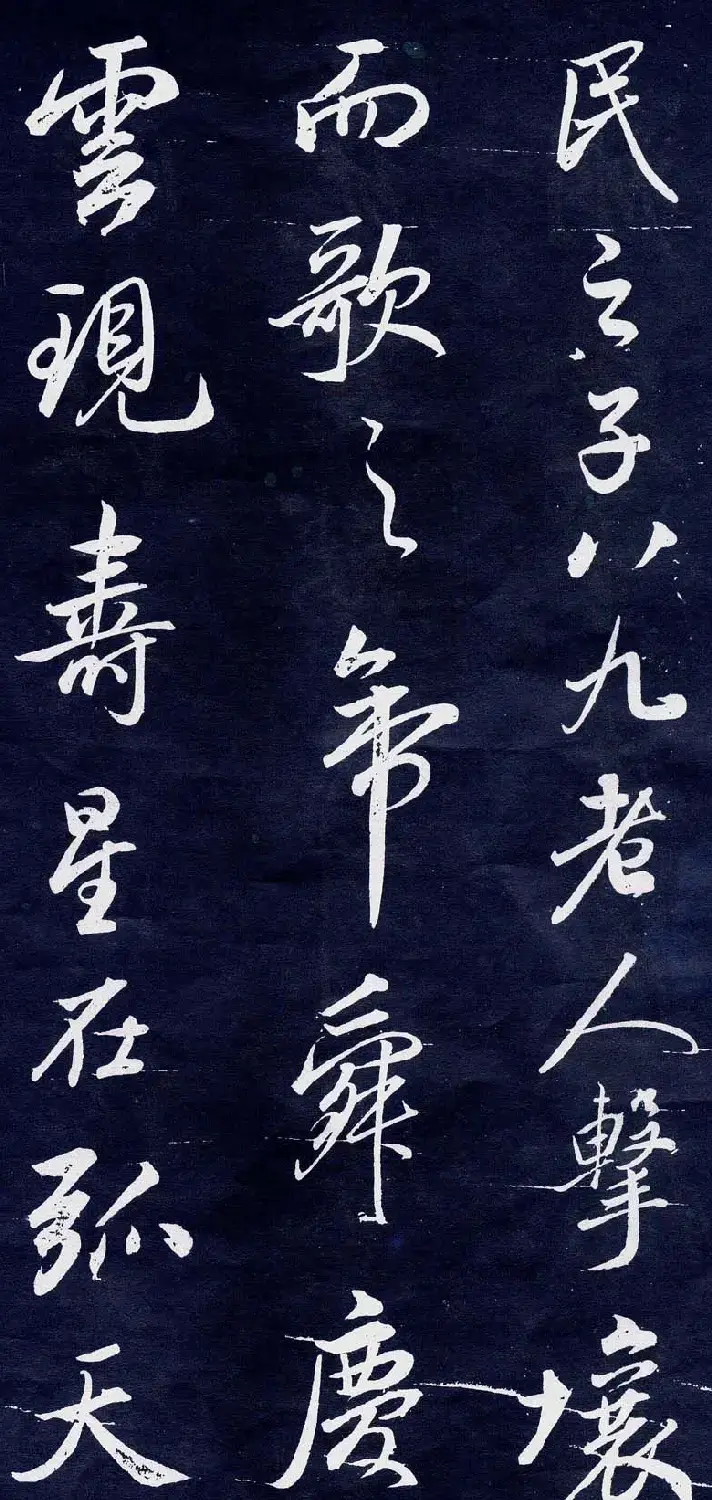 民之子八九老人擊壤
而歌之帝舜慶
雲現壽星在弧天